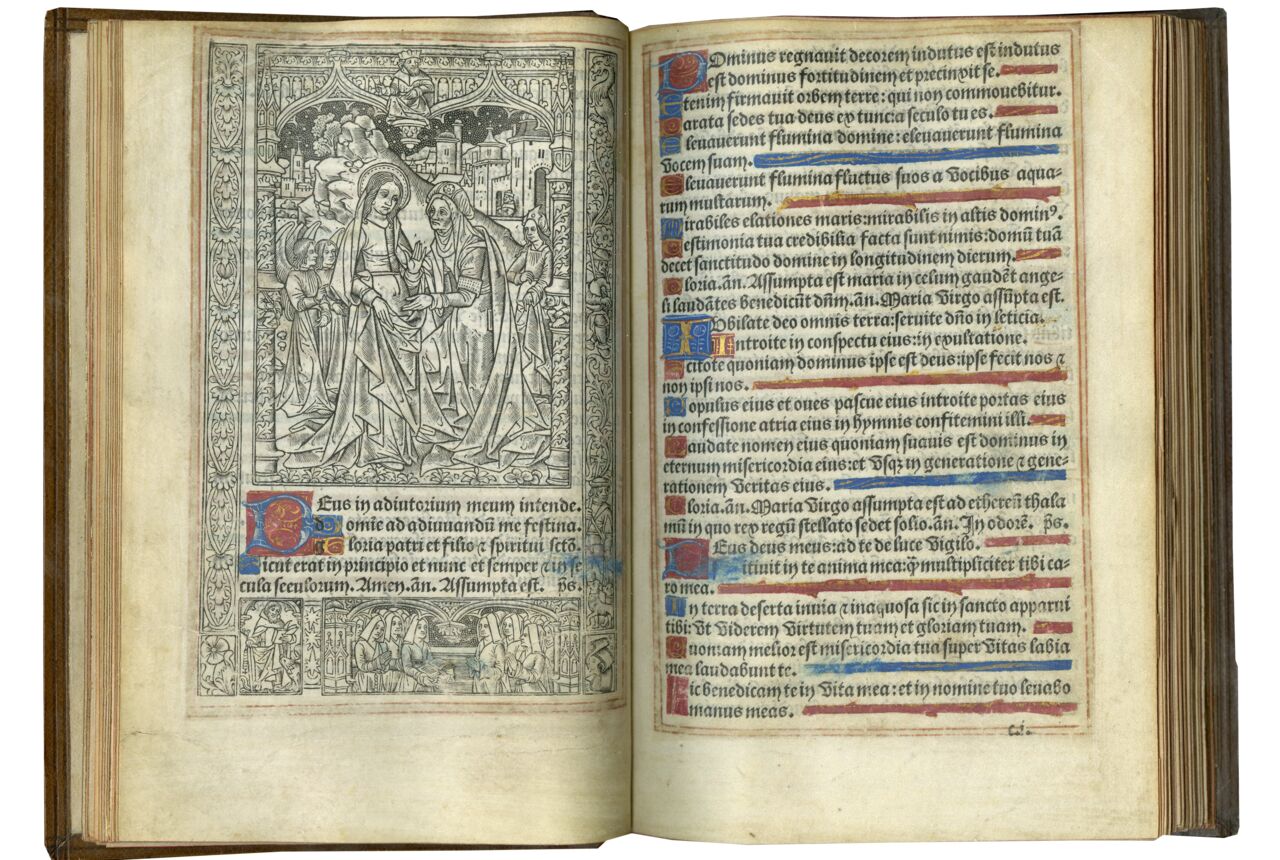 DEus in adiutorium meum intende.
domie ad adiuuandū me festina.
gloria patri et filio ⁊ spiritui sctō.
Sicut erat in principio et nunc et semper ⁊ in se
cula seculorum. Amen. an̄. Assumpta est. p̄s.
DOminus regnauit decorem indutus est indutus
est dominus fortitudinem et precinxit se.
Etenim firmauit orbem terre: qui non commouebitur.
Parata sedes tua deus ex tunc: a seculo tu es.
Eleuauerunt flumina domine: eleuauerunt flumina
vocem suam.
Eleuauerunt flumina fluctus suos a vocibus aqua-
rum multarum.
Mirabiles elationes maris: mirabilis in altis dominꝰ.
Testimonia tua credibilia facta sunt nimis: domū tuā
decet sanctitudo domine in longitudinem dierum.
Gloria. an̄. Assumpta est maria in celum gaudēt ange-
li laudātes benedicūt dn̄m. an̄. Maria Virgo assūpta est.
IVbilate deo omnis terra: seruite dn̄o in leticia.
Introite in conspectu eius: in exultatione.
Scitote quoniam dominus ipse est deus: ipse fecit nos ⁊
non ipsi nos.
Populus eius et oues pascue eius introite portas eius
in confessione atria eius in hymnis confitemini illi.
Laudate nomen eius quoniam suauis est dominus in
eternum misericordia eius: et vsqꝫ in generatione ⁊ gene-
rationem veritas eius.
Gloria. an̄. Maria Virgo assumpta est ad ethereū thala
mū in quo rex regū stellato sedet solio. an̄. In odorē. p̄s.
DEus deus meus: ad te de luce vigilo.
Sitiuit in te anima mea: q̄ multipliciter tibi ca-
ro mea.
In terra deserta inuia ⁊ inaquosa sic in sancto apparui
tibi: vt viderem virtutem tuam et gloriam tuam.
Quoniam melior est misericordia tua super vitas labia
mea laudabunt te.
Sic benedicam te in vita mea: et in nomine tuo leuabo
manus meas.
c.i.